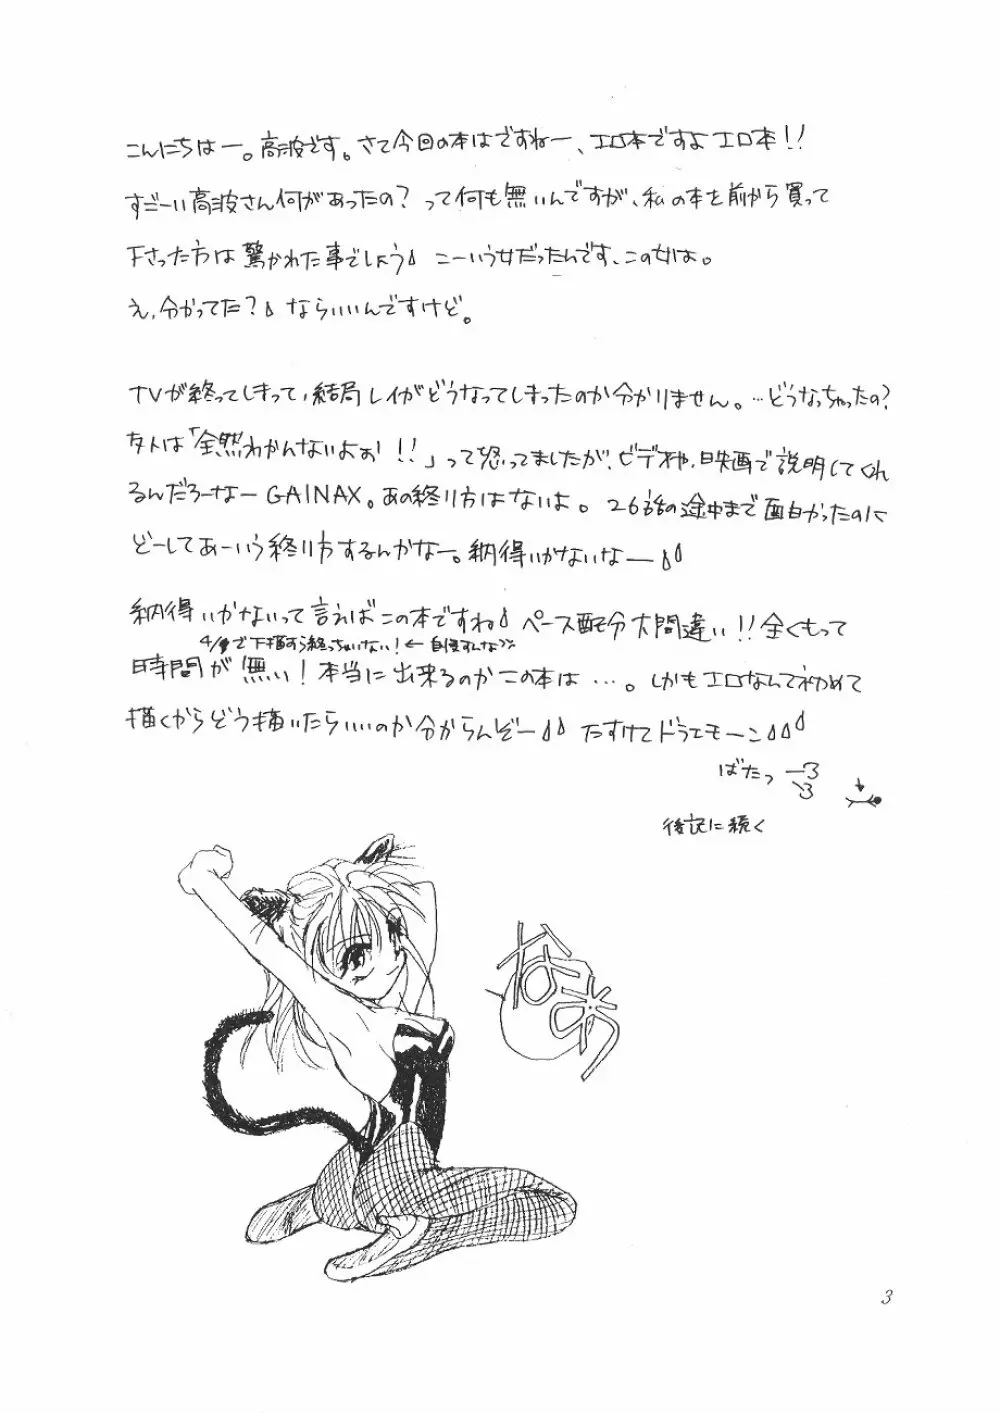 こんにちはー。高波です。さて今回の本はですねー、エロ本ですよエロ本!!
すごーい高波さん何があったの?って何も無いんですが、私の本を前から買って
下さった方は驚かれた事でしょう こーいう女だったんです、この女は。
え、分かってた? ならいいんですけど。
TVが終ってしまって、結局レイがどうなってしまったのか分かりません。…どうなっちゃったの?
友人は「全然わかんないよぉ!!」って怒ってましたが、ビデオや、映画で説明してくれ
るんだろーなーGAINAX。あの終り方はないよ。26話の途中まで面白かったのに
どーしてあーいう終り方するんかなー。納得いかないなー
納得いかないって言えばこの本ですね ペース配分大間違い!!全くもって
4/で下描すら終っちゃいない!←自慢すんな
時間が無い!本当に出来るのかこの本は…。しかもエロなんて初めて
描くからどう描いたらいいのか分からんぞー たすけてドラえモーン
ばたっ
後記に続く
なあ
3